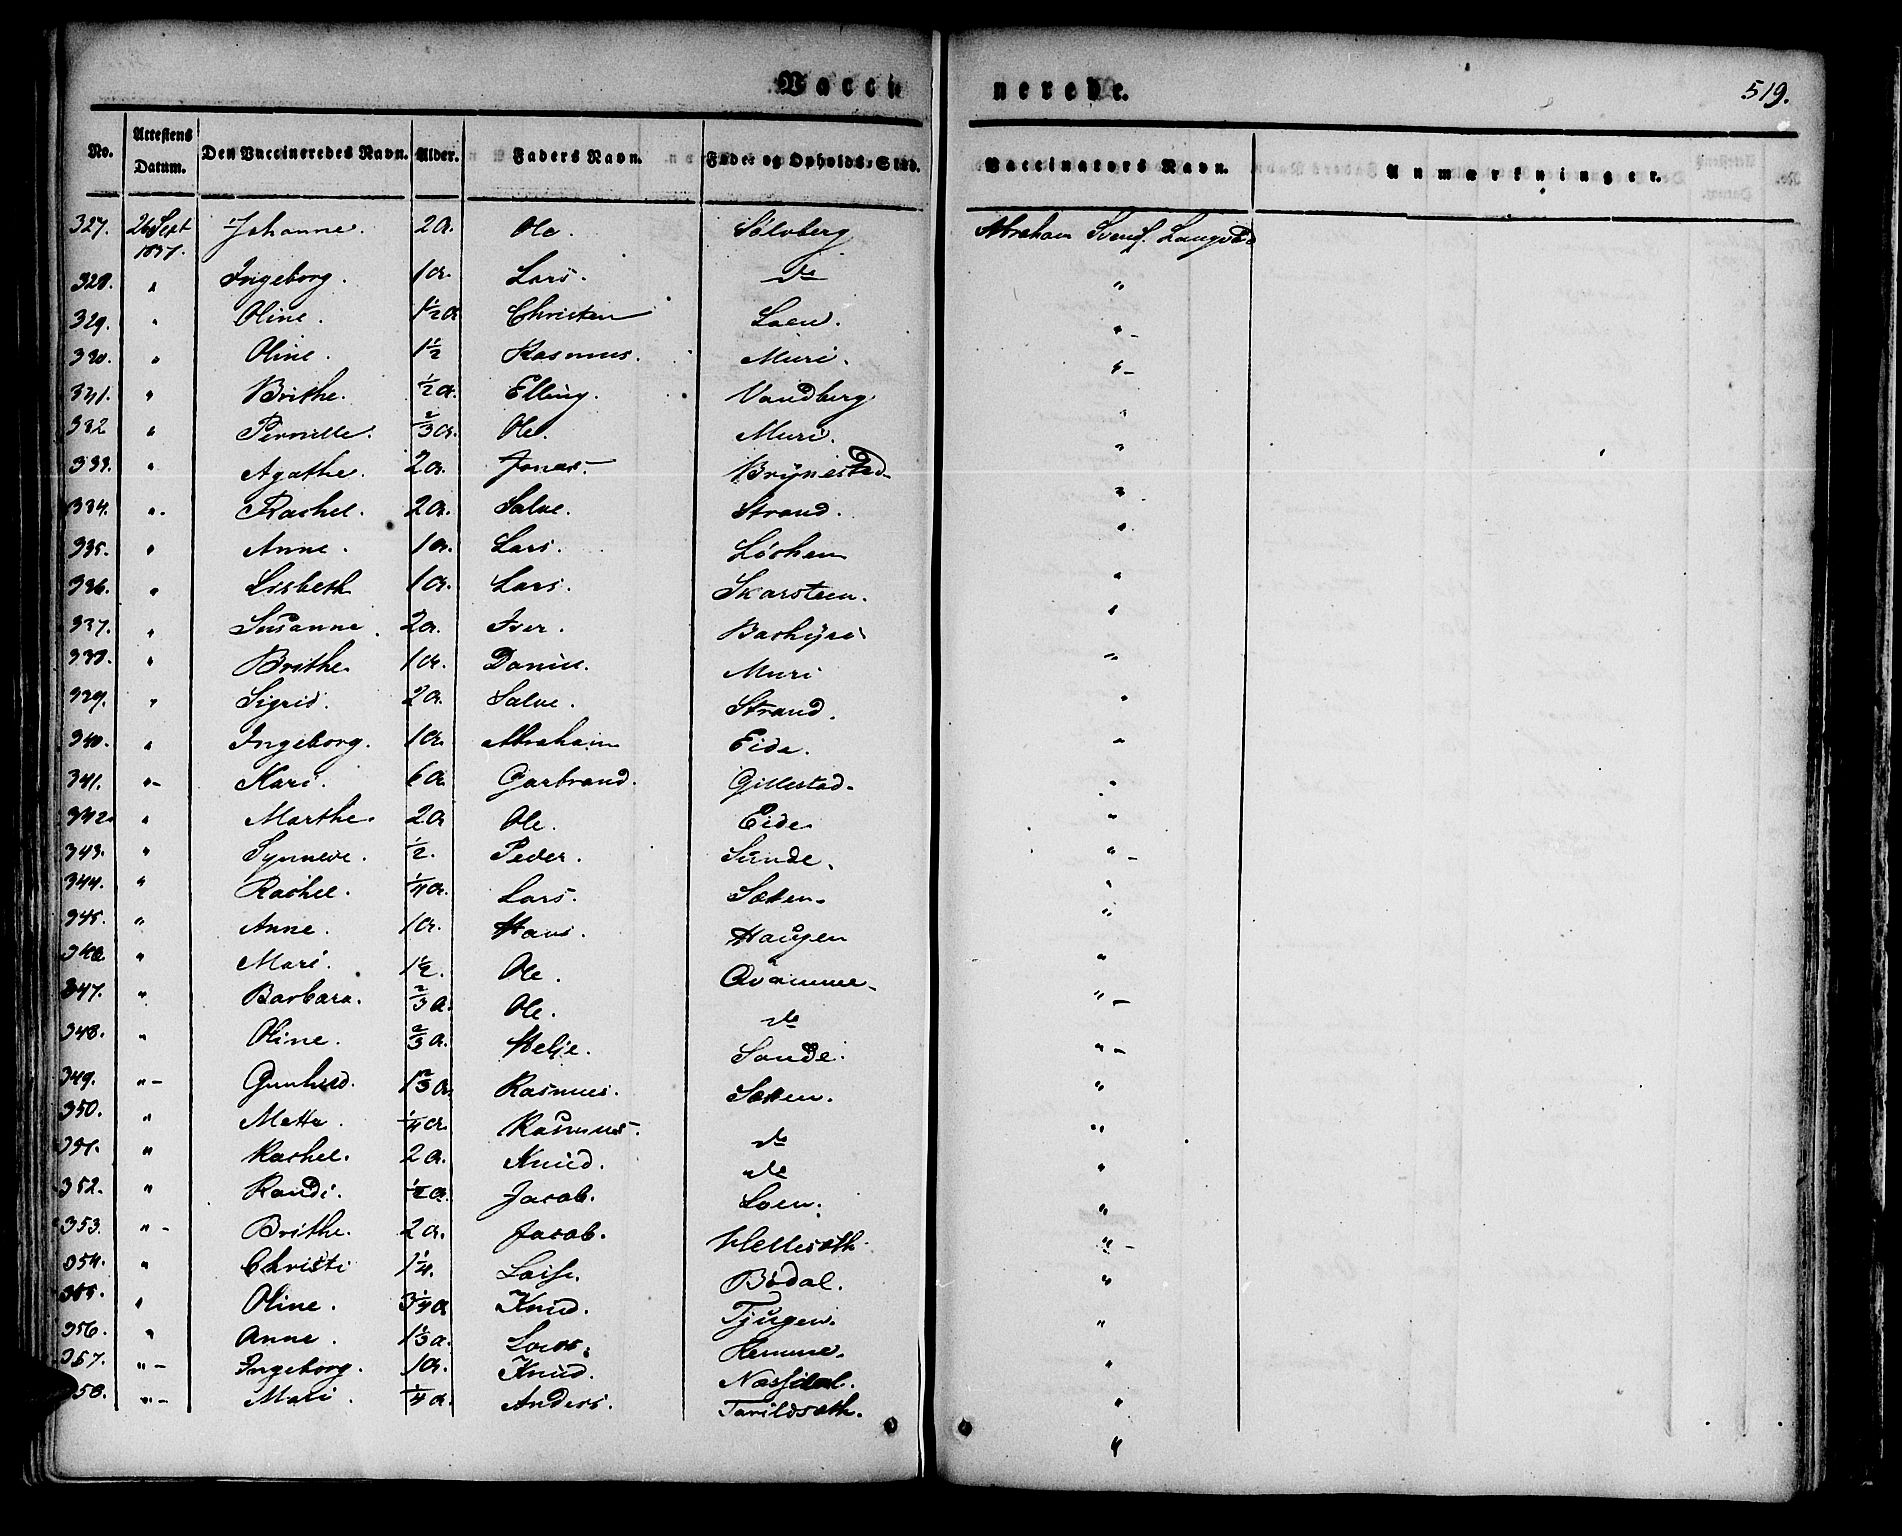 Vacci nerede.
519.
No. Attestens Datum. Den Vaccineredes Navn. Alder. Faders Navn. Føde- og Opholds-Sted. Vaccinators Navn. Anmærkninger.
327. 26 Sept 1837. Johanne. 2a. Ole. Solvberg Abraham Svends. Langvad
328. " Ingeborg. 1a. Lars. do "
329. " Oline. 1½a Christen Loen. " -
330. " Oline. 1½ Rasmus. Muri. " -
331. " Brithe. ½a. Elling. Vandberg "
332 " Pernille. ⅔a. Ole. Muri. "
333. " Agathe. 2a. Jonas. Brynestad "
334. " Rachel. 2a. Salve. Strand. "
335. " Anne. 1a. Lars. Løchen "
336. " Lisbeth 1a. Lars. Skarsteen. "
337. " Susanne. 2a. Iver. "
338. " Brithe. 1a. Daniel. Muri "
339. " Sigrid. 2a. Salve. Strand. "
340. " Ingeborg. 1a. Abraham Eide. "
341. " - Kari. 6a. Garbrand. Gillestad. "
342. " Marthe. 2a Ole. Eide "
343. " Synneve. ½. Peder. Sunde. " -
344. " Rachel. ¼a. Lars. Sætten. "
345. " Anne. 1a. Hans. Haugen "
346 " Mari. 1½. Ole. Qvamme. "
347. " Barbara. ⅔a. Ole. do " -
348. " Oline. ⅔a. Helje. Sande. " -
349. " - Gunhild. 1⅔a. Rasmus. Sætten. "
350. " Mette. ¼a. Rasmus. do "
351. " Rachel. 2a. Knud. do "
352. " Randi. ½a. Jacob. Loen. "
353. " - Brithe. 2a. Jacob. Hellesæth. " -
354. " Christi 1¼. Bødal. "
355. " Oline. 3¼a Knud. Tjugen. "
356. " Anne. 1⅓a. Lars. Hemme. "
357. " - Ingeborg. 1a. Knud. Næsdal. "
358. " - Mari ¼a. Anders. Tarildsæth. "